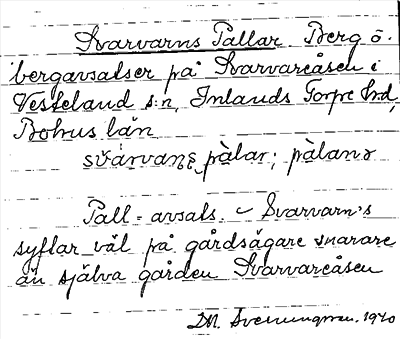 Svarvarns Pallar. Berg o.
bergavsatser på Svarvareåsen i
Vesteland s:n, Inlands Torpe hd,
Bohus län
svàrvaṇṣ pàlar; pàlanə
Pall = avsats. – Svarvarn's
syftar väl på gårdsägare snarare
än själva gården Svarvareåsen
DM. Sverungman. 1940